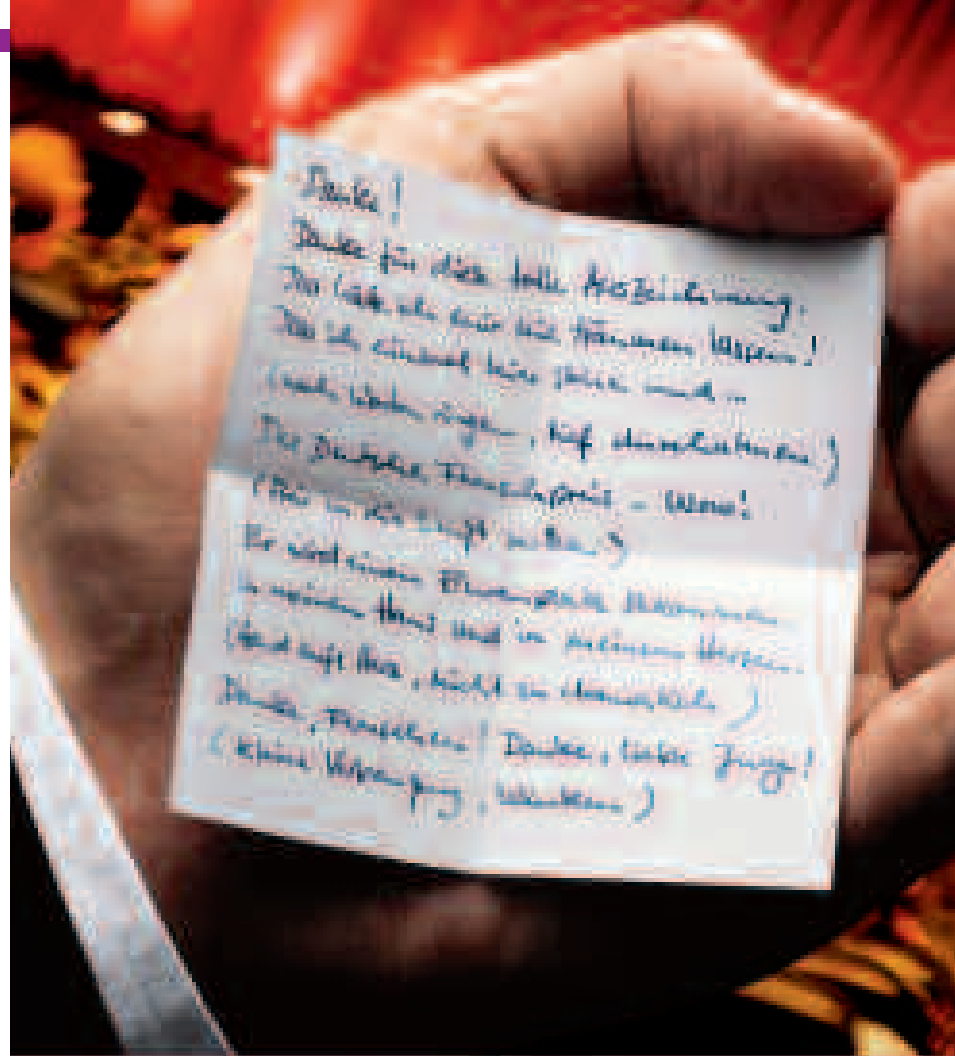 Danke!
Danke für diese tolle Auszeichnung.
Das habe ich nur nie können wissen!
Das ich einmal hier stehen und ...
(nach Worten ringen, tief durchatmen)
Der Deutsche Fernsehpreis – Wow!
(Preis in die Luft )
Er wird einen Ehrenplatz bekommen
in meinem Haus und in meinem Herzen.
(Hand aufs Herz, nicht zu dramatisch)
Danke, Fernsehen! Danke, liebe Jury!
(kleine Verbeugung, Winken)